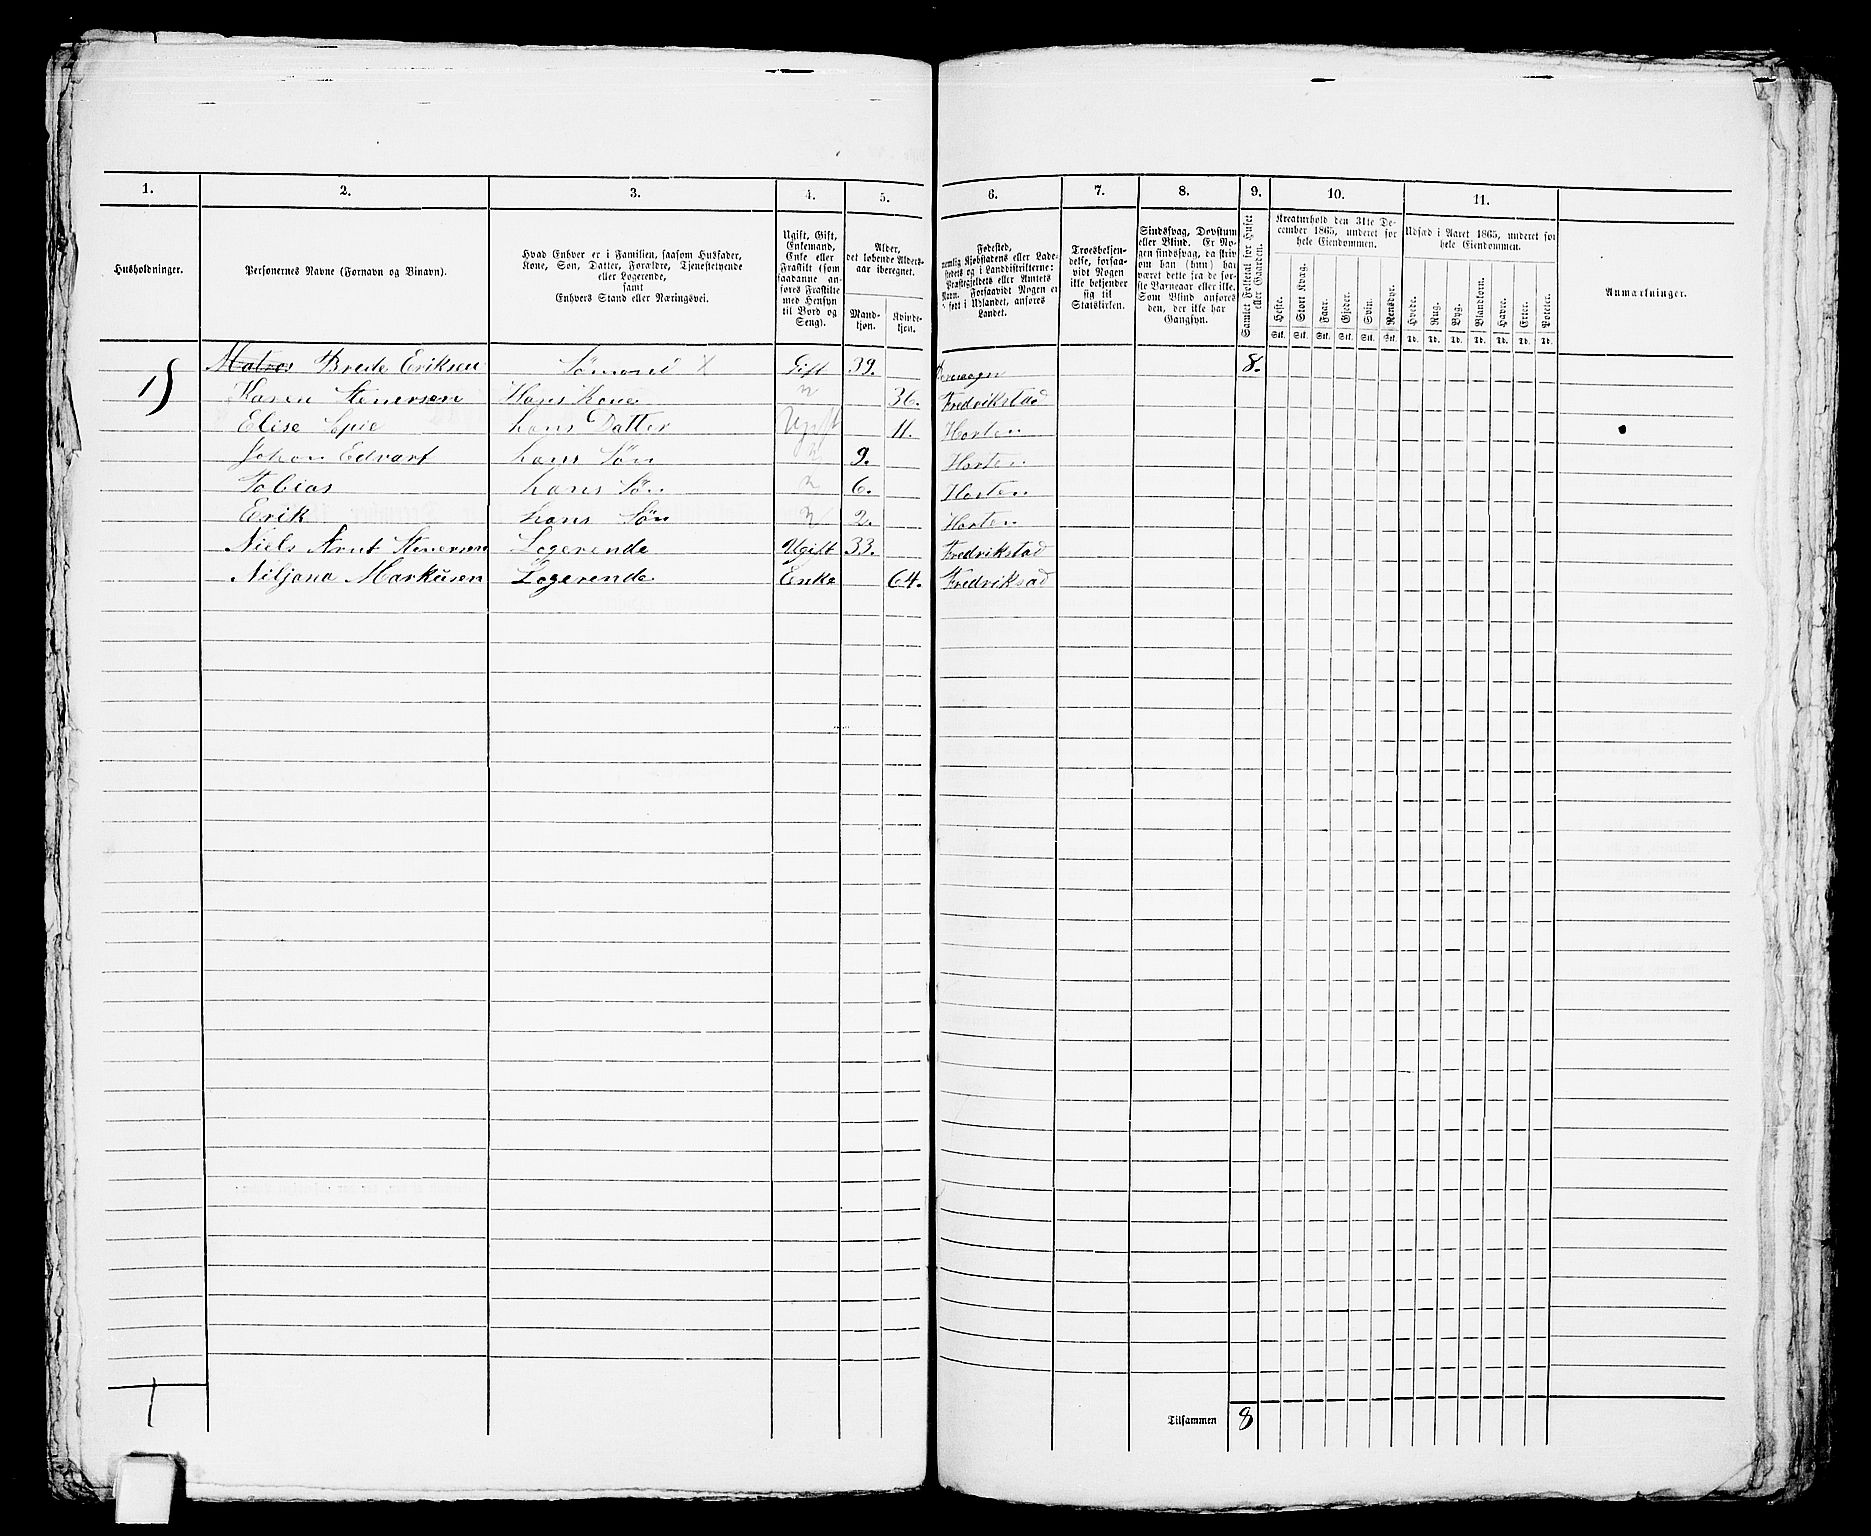 1. 2. 3. 4. 5. 6. 7. 8. 9. 10. 11.
Husholdninger.
Personernes Navne (Fornavn og Binavn).
Hvad Enhver er i Familien, saasom Husfader,
Kone, Søn, Datter, Forældre, Tjenestetyende
eller Logerende,
samt
Enhvers Stand eller Næringsvei.
Ugift, Gift,
Enkemand,
Enke eller
Fraskilt (som
saadanne an-
føres Fraskilte
med Hensyn
til Bord og
Seng).
Alder,
det løbende Alders-
aar iberegnet.
Mand-
kjøn.
Kvinde-
kjøn.
Fødested,
nemlig Kjøbstadens eller Lade-
stedets og i Landdistrikterne:
Præstegjeldets eller Amtets
Navn. Forsaavidt Nogen er
født i Udlandet, anføres
Landet.
Troesbekjen-
delse, forsaa-
vidt Nogen
ikke bekjender
sig til
Statskirken.
Sindssvag, Døvstum
eller Blind. Er No-
gen sindssvag, da skriv
om han (hun) har
været dette fra de før-
ste Barneaar eller ikke.
Som Blind anføres
den, der ikke har
Gangsyn.
Samlet Folketal for Huset
eller Gaarden.
Kreaturhold den 31te De-
cember 1865, underet for
hele Eiendommen.
Heste. Stort Kvæg. Faar. Gjeder. Svin. Rensdyr.
Stk. Stk. Stk. Stk. Stk. Stk.
Udsæd i Aaret 1865, underet for
hele Eiendommen.
Hvede. Rug. Byg. Blandkorn. Havre. Erter. Poteter.
Td. Td. Td. Td. Td. Td. Td.
Anmærkninger.
Matros Brede Eriksen Sømand X Gift 39. 8.
1) Karen Stenersen Hans Kone 36. Fredrikstad
Elise Sopie hans Datter Ugift 11. Horten
Johan Edvart hans Søn 9. Horten
Tobias hans Søn 6. Horten
Erik hans Søn 2. Horten
Niels Arnt Stenersen Logerende Ugift 33. Fredrikstad
Niljana Markusen Logerende Enke 64. Fredriksad
1
Tilsammen 8